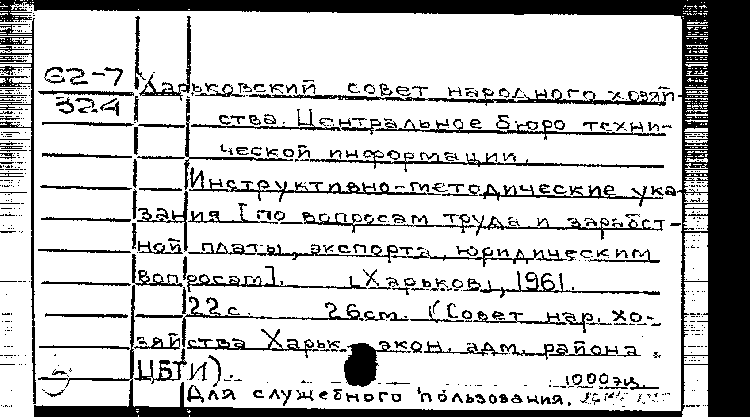 62-7
324
Харьковский совет народного хозяй-
ства. Центральное бюро техни-
ческой информации.
Инструктивно-методические ука-
зания [по вопросам труда и заработ-
ной платы, экспорта, юридическим
вопросам]. [Харьков], 1961.
22 с. 26 см. (Совет нар. хо-
зяйства Харьк. экон. адм. района.
ЦБТИ).
1000 экз.
Для служебного пользования.